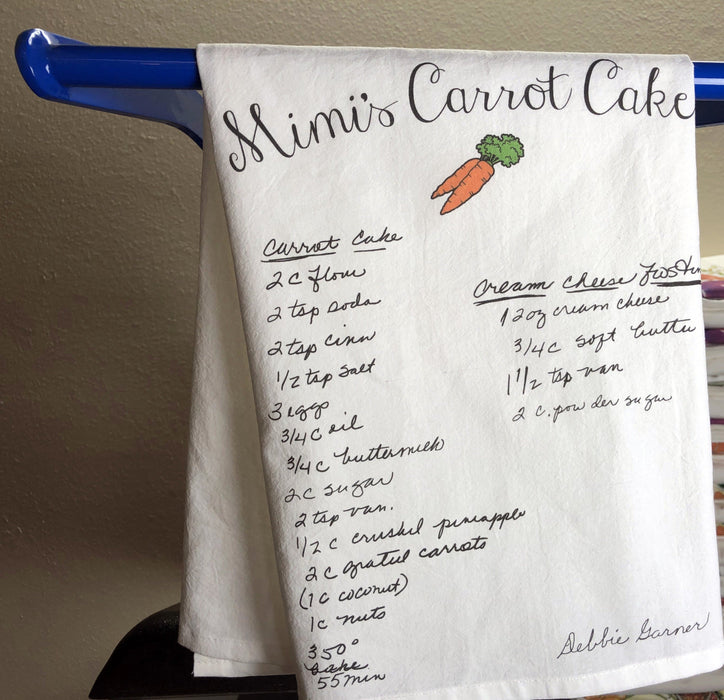 Mimi's Carrot Cake
Carrot Cake
2 c flour
2 tsp soda
2 tsp cinn
1/2 tsp salt
3 eggs
3/4 c oil
3/4 c buttermilk
2 c sugar
2 tsp van.
1/2 c crushed pineapple
2 c grated carrots
(1 c coconut)
1 c nuts
350°
bake
55 min
Cream cheese Frostin
12oz cream cheese
3/4 c soft butter
1 1/2 tsp van
2 c. powder sugar
Debbie Garner